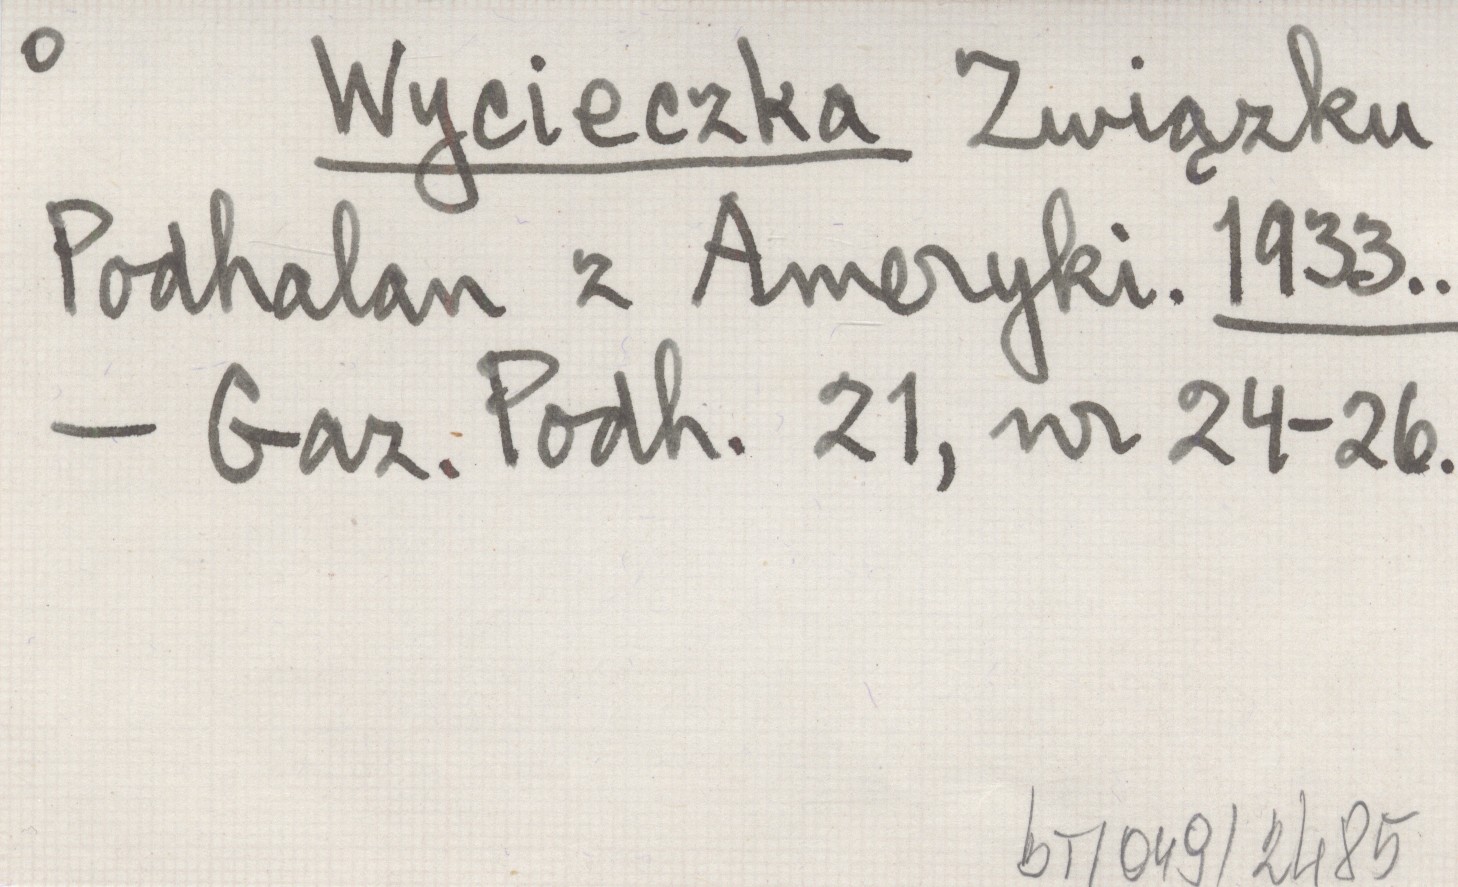 o
Wycieczka Związku
Podhalan z Ameryki. 1933..
— Gaz. Podh. 21, nr 24-26.
bT/049/2485